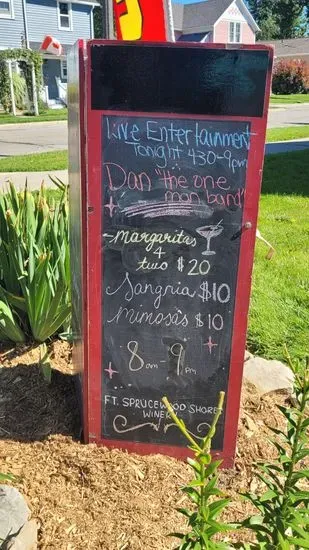 Live Entertainment
Tonight 430-9pm
Dan "the one
man band"
-margaritas
4
two $20
Sangria $10
mimosas $10
8am-9pm
FT. SPRUCEWOOD SHORES
WINE